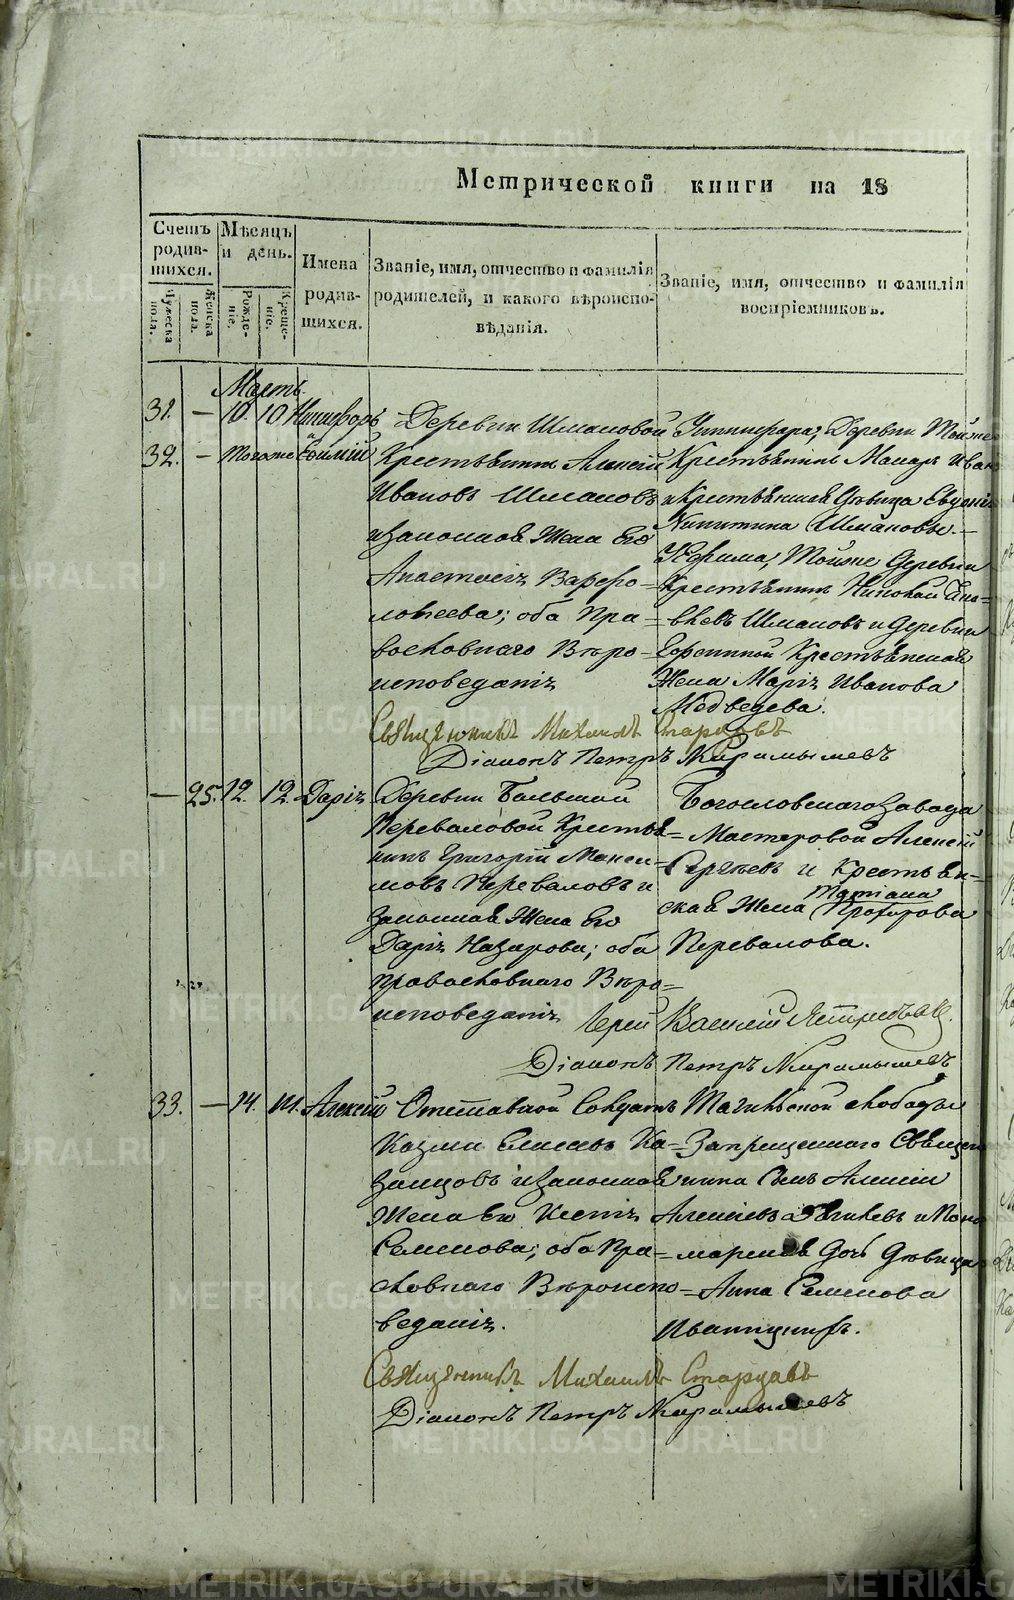 Метрической книги на 18
Счетъ родив-шихся.
Мѣсяцъ и день.
Имена родив-шихся.
Званіе, имя, отчество и фамилія родителей, и какого вѣроиспо-вѣданія.
Званіе, имя, отчество и фамилія воспріемниковъ.
Мужеска пола.
Женска пола.
Рожде-ніе.
Креще-ніе.
Мартъ
31. — 10. 10 Никифоръ
и
32. — Тогоже Ефимій
Деревни Шмаковой
Крестьянинъ Алексій
Ивановъ Шмаковъ
и законная Жена Его
Анастасія Варфо-
ломеева; оба Пра-
вославнаго Вѣро-
исповеданія
Никифора, Деревни Тойже
Крестьянинъ Макаръ Ивано
и Крестьянская Дѣвица Евдокія
Никитина Шмаковы.—
Ефима, Тойже Деревни
Крестьянинъ Николай
Шмаковъ и Деревни
Крестьянская
Жена Марія Иванова
Медведева.
Священникъ Михаилъ Старцовъ
Діаконъ Петръ Карамышевъ
— 25. 12. 12. Дарія
Деревни Большой
Переваловой Крестья-
нинъ Григорій Макси-
мовъ Переваловъ и
законная Жена Его
Дарія Назарова; оба
православнаго Вѣро-
исповеданія
Богословскаго завода
Мастеровой Алексій
Сергѣевъ и Крестьян-
Татіана
ская Жена Прохорова
Перевалова.
Іерей Василій
Діаконъ Петръ Карамышевъ
33. — 14. 14. Алексій
Отставной Солдатъ
Козма Елисеевъ Ка-
занцовъ и законная
Жена Его Ксенія
Семенова; оба Пра-
славнаго Вѣроиспо-
веданія.
Тагильской слободы
Запрещеннаго Священ
ника Сынъ Алексій
Алексіевъ и Поно
марская Дочь Дѣвица
Анна Семенова
Священникъ Михаилъ Старцовъ
Діаконъ Петръ Карамышевъ
METRIKI.GASO-URAL.RU